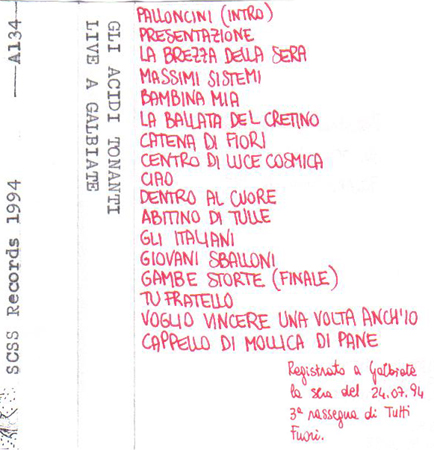 PALLONCINI (INTRO)
PRESENTAZIONE
LA BREZZA DELLA SERA
MASSIMI SISTEMI
BAMBINA MIA
LA BALLATA DEL CRETINO
CATENA DI FIORI
CENTRO DI LUCE COSMICA
CIAO
DENTRO AL CUORE
ABITINO DI TULLE
GLI ITALIANI
GIOVANI SBALLONI
GAMBE STORTE (FINALE)
TU FRATELLO
VOGLIO VINCERE UNA VOLTA ANCH'IO
CAPPELLO DI MOLLICA DI PANE
Registrato a Galbiate
la sera del 24.07.94
3ª rassegna di Tutti
Fuori.
GLI ACIDI TONANTI
LIVE A GALBIATE
SCSS Records 1994 ——A134